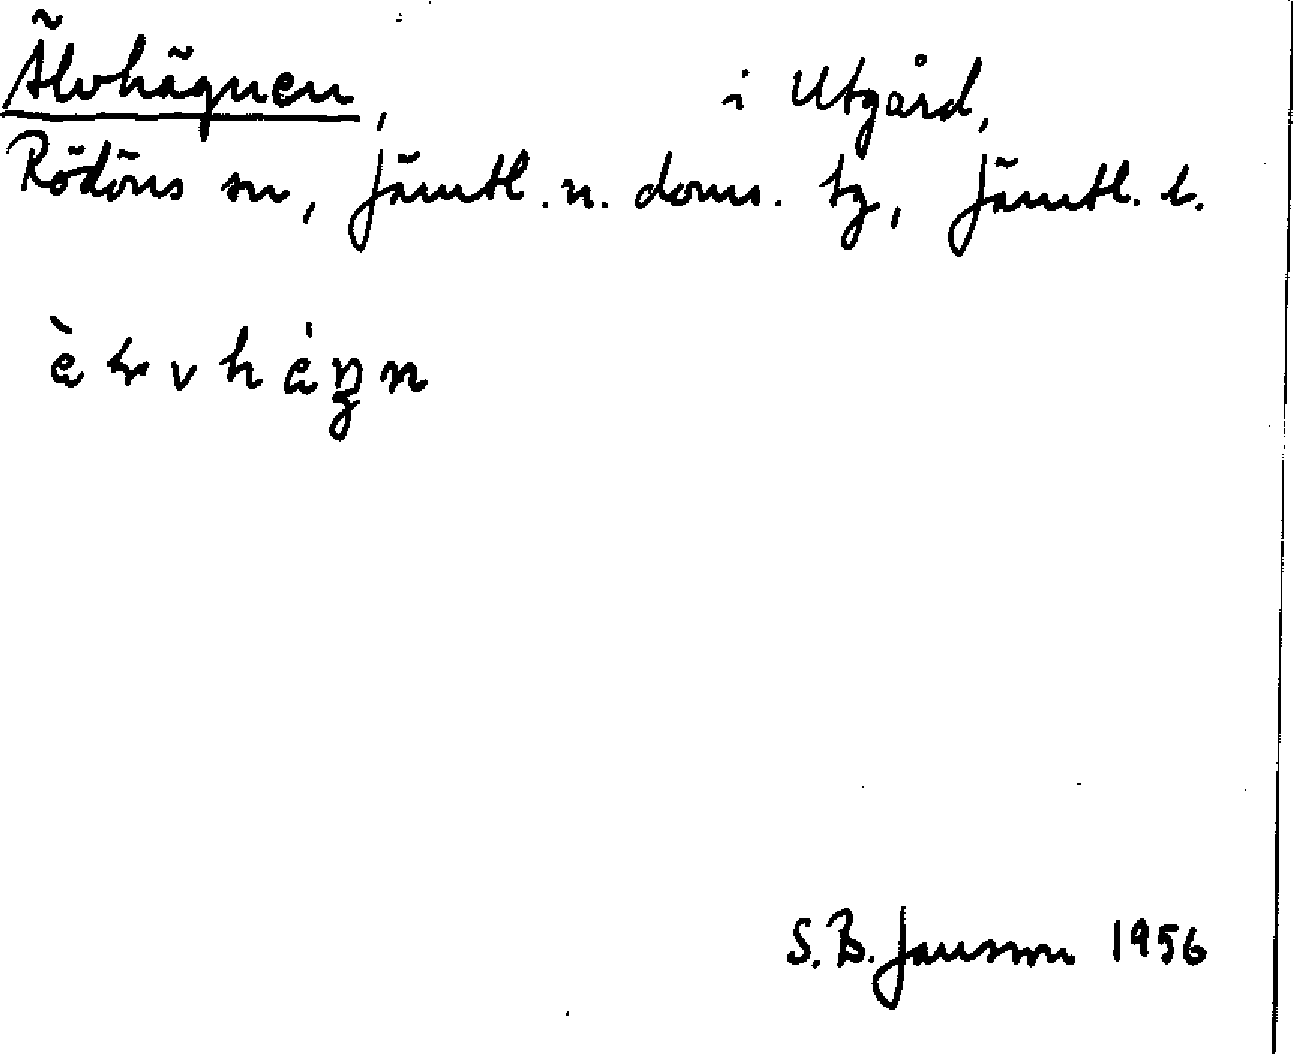 Älvhägnen, i Utgård,
Rödöns sn, Jämtl. n. doms. tg, Jämtl. l.
S.B. Jansson 1956